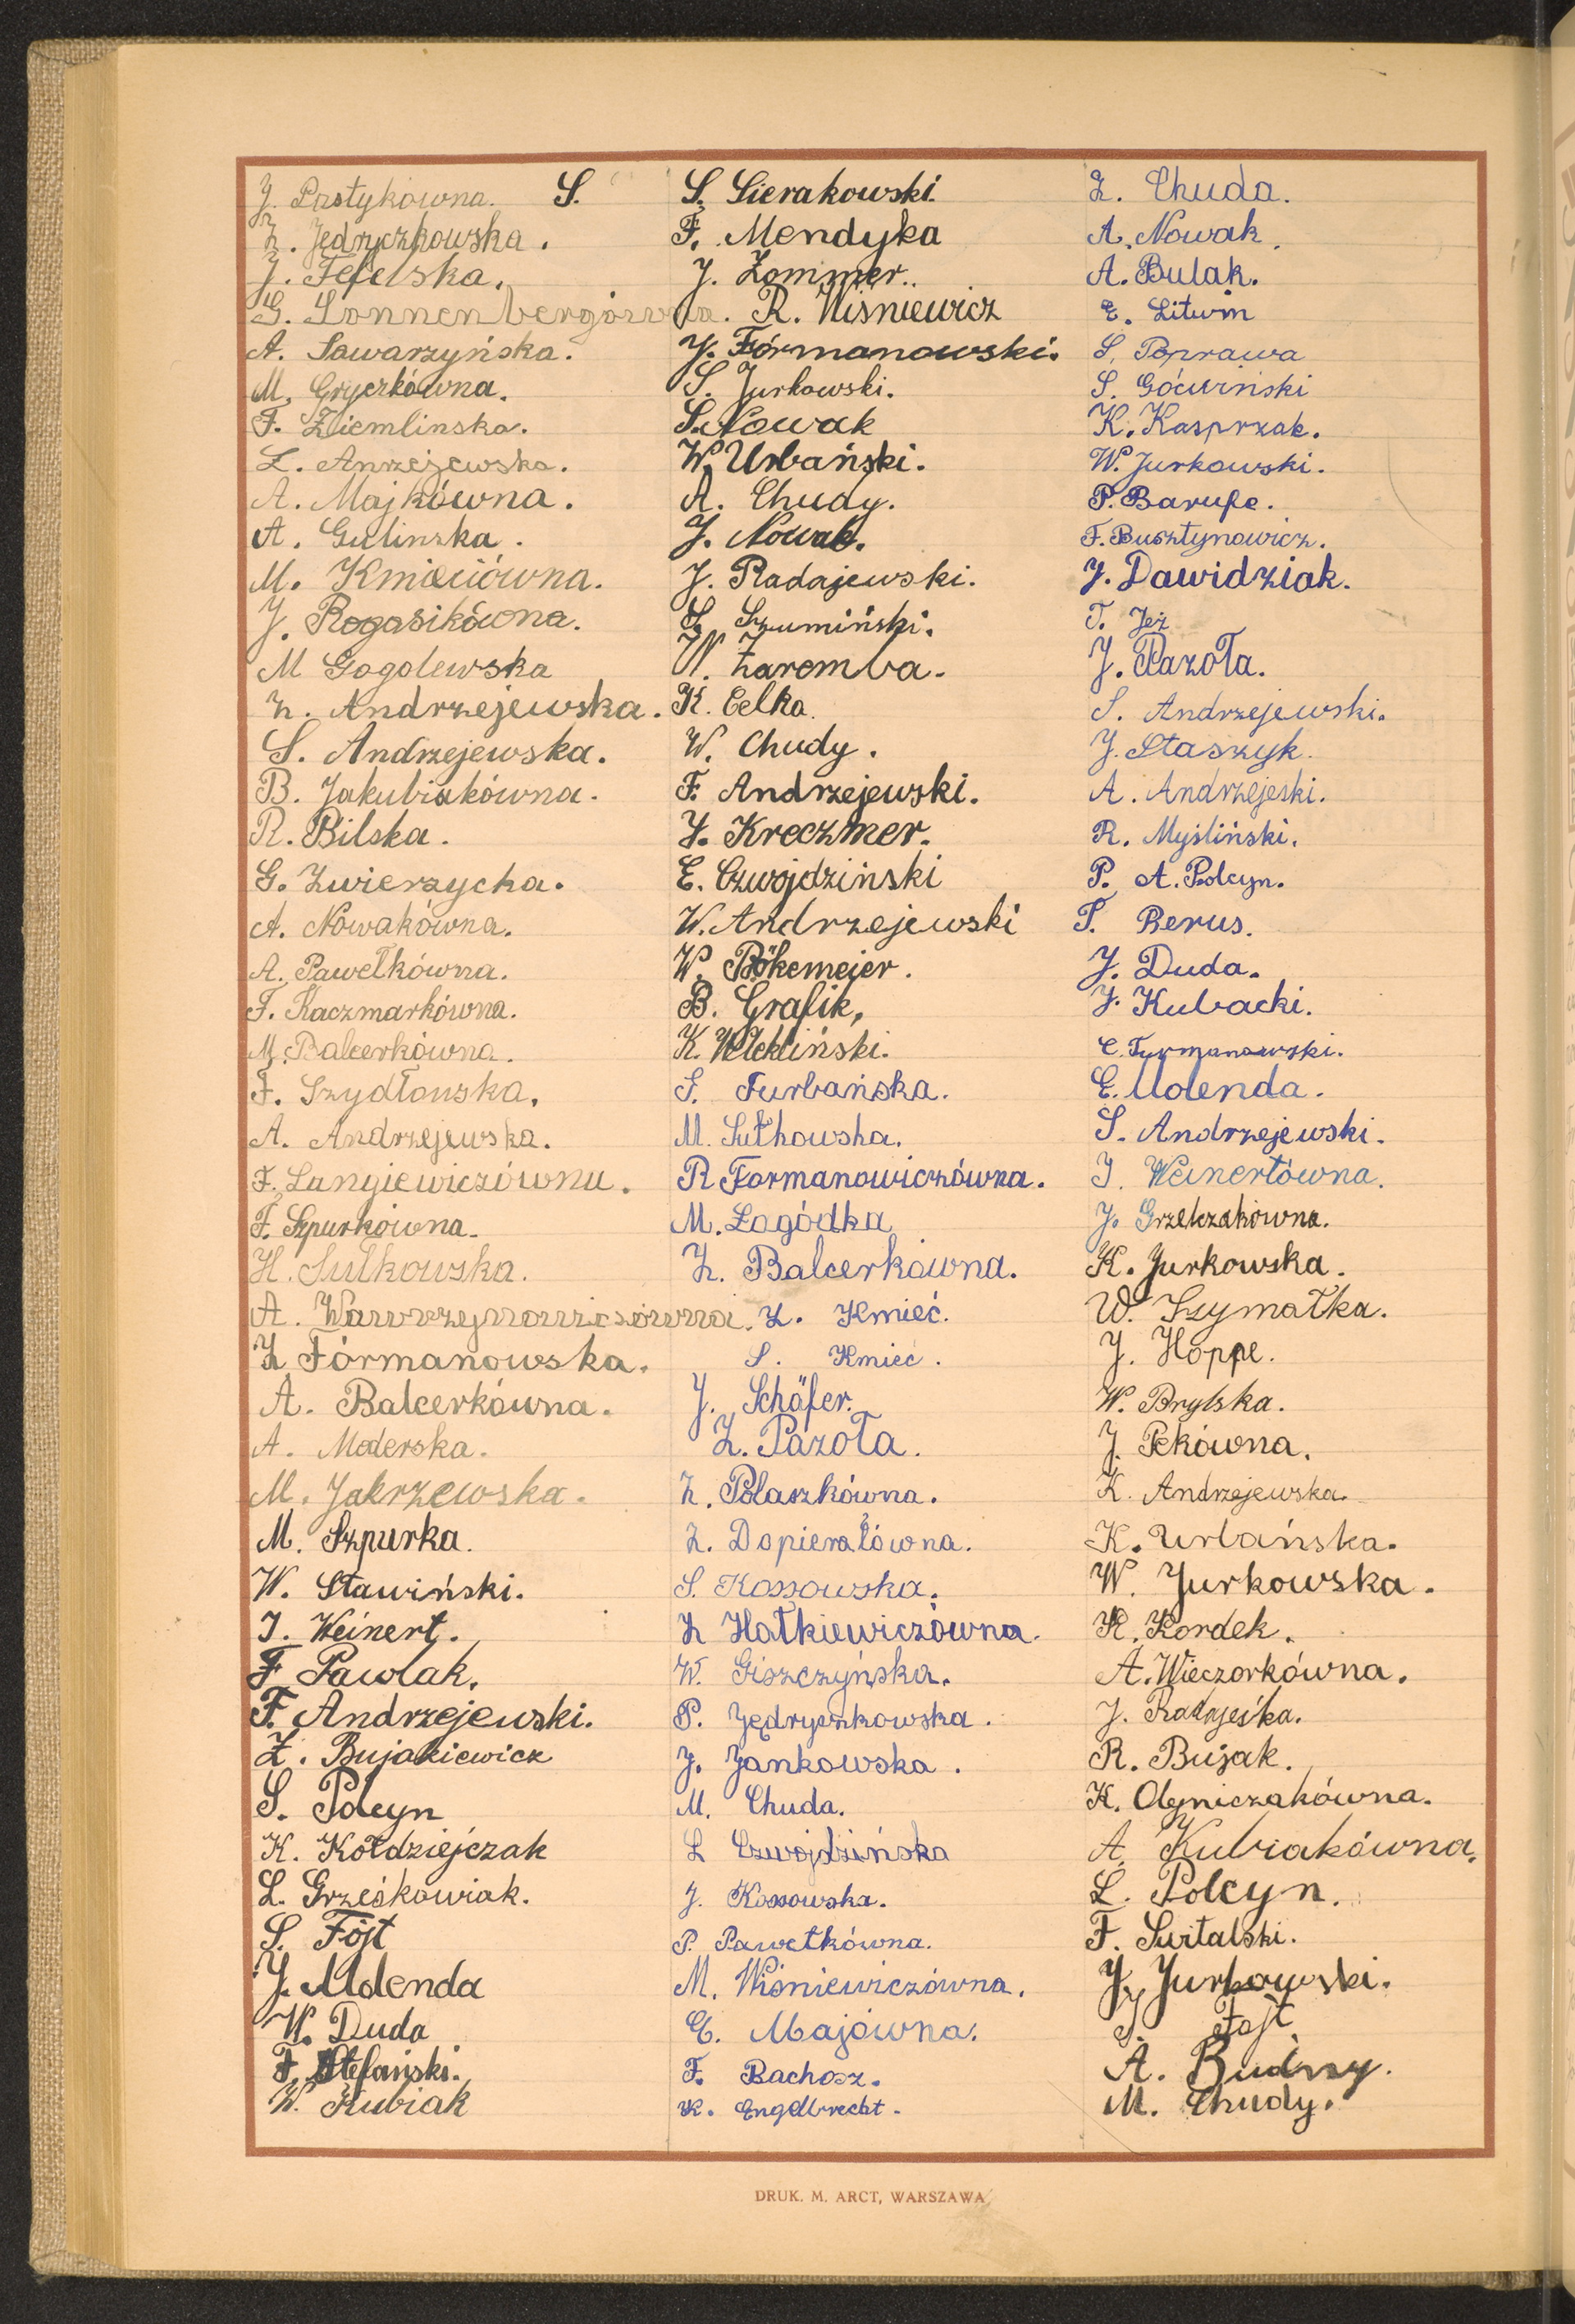 J. Pastykówna. S.
Z. Jedryczkowska.
J. Tefelska.
G. Sonnenbergówna.
A. Sawarzyńska.
M. Gryczkówna.
F. Ziemlinska.
L. Anrzejewska.
A. Majkówna.
A. Gulinska.
M. Kmieciówna.
J. Rogasikówna.
M Gogolewska
Z. Andrzejewska.
S. Andrzejewska.
B. Jakubiakówna.
R. Bilska.
G. Zwierzycka.
A. Nowakówna.
A. Pawełkówna.
F. Kaczmarkówna.
M. Balcerkówna.
F. Szydłowska.
A. Andrzejewska.
F. Langiewiczównu.
F. Szpurkówna.
H. Sułkowska.
A. Wawrzynowiczówna.
Z Formanowska.
A. Balcerkówna.
A. Moderska.
M. Jakrzewska.
M. Szpurka.
W. Stawiński.
J. Weinert.
F Pawlak.
F. Andrzejewski.
Z. Bujakiewicz
S. Polcyn
K. Kołdziejczak
L. Grześkowiak.
S. Fojt
J. Molenda
W. Duda
F. Stefański.
W. Kubiak
S. Sierakowski.
F. Mendyka
J. Zommer..
R. Wisniewicz
J. Formanowski.
S. Jurkowski.
S. Nowak
W. Urbański.
A. Chudy.
J. Nowak.
J. Radajewski.
S. Szumiński.
W. Zaremba.
K. Celka.
W. Chudy.
F. Andrzejewski.
J. Kreczmer.
E. Czwojdziński
W. Andrzejewski
W. Bökemeier.
B. Grafik,
K. Wekliński.
S. Furbańska.
M. Sułkowska.
R Formanowiczówna.
M. Łagódka
Z. Balcerkówna.
Z. Kmieć.
S. Kmiec.
J. Schäfer.
Z. Pazoła.
Z. Polaszkówna.
Z. Dopierałówna.
S. Kossowska.
Z Hałkiewiczówna.
W. Giszczyńska.
P. Jędryczkowska.
J. Jankowska.
M. Chuda.
L Czwojdzińska
J. Kossowska.
P. Pawełkówna.
M. Wiśniewiczówna.
E. Majówna.
F. Bachosz.
K. Engelbrecht.
Z. Chuda.
A. Nowak.
A. Bulak.
E. Litwin
S. Poprawa
S. Góćwiński
K. Kasprzak.
W. Jurkowski.
P. Barufe.
F. Busztynowicz.
J. Dawidziak.
T. Jeż
J. Pazoła.
S. Andrzejewski.
J. Staszyk.
A. Andrzejeski.
R. Myśliński.
P. A. Polcyn.
T. Berus.
J. Duda.
J. Kubacki.
C. Furmanowski.
E. Molenda.
S. Andrzejewski.
J. Weinertówna.
J. Grzelczakówna.
K. Jurkowska.
W. Szymałka.
J. Hoppe.
W. Brylska.
J. Pekówna.
K. Andrzejewska.
K. Urbańska.
W. Jurkowska.
K. Kordek.
A. Wieczorkówna.
J.
R. Bujak.
K. Olejniczakówna.
A. Kubiakówna.
L. Polcyn.
F. Switalski.
J. Jurkowski.
S. Fojt
A. Budny.
M. Chudy.
DRUK. M. ARCT, WARSZAWA